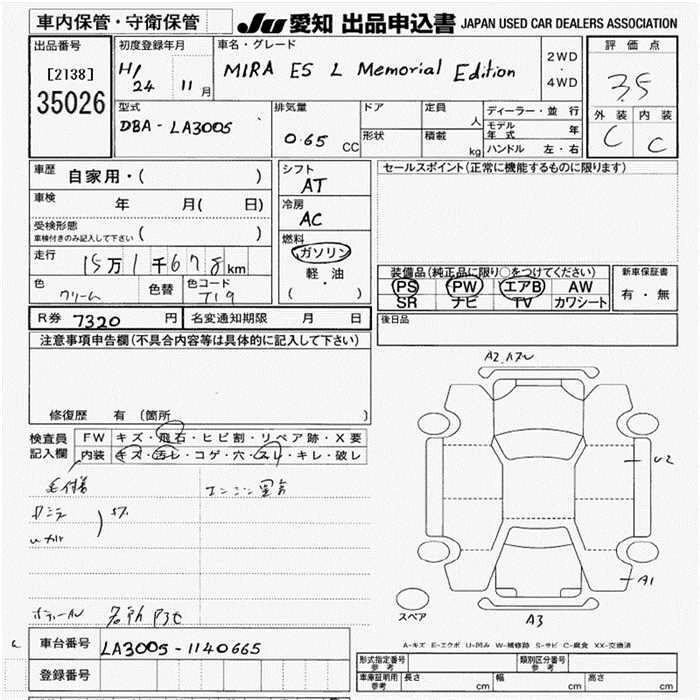 車内保管・守衛保管
JU 愛知 出品申込書 JAPAN USED CAR DEALERS ASSOCIATION
出品番号
[2138]
35026
初度登録年月
H/24 11月
車名・グレード
MIRA ES L Memorial Edition
2WD
・
4WD
評価点
3.5
外装 内装
C C
型式
DBA-LA300S
排気量
0.65 CC
ドア
形状
定員 人
積載 kg
ディーラー・並行
モデル年式 年
ハンドル 左・右
車歴 自家用・( )
車検 年 月( 日)
受検形態
車検付きのみ記入して下さい ( )
走行 15万1千678km
色 クリーム
色替
色コード T19
シフト
AT
冷房
AC
燃料
ガソリン
・
軽・油
( )
セールスポイント(正常に機能するものに限ります)
装備品(純正品に限り○をつけてください)
PS PW エアB AW
SR ナビ TV カワシート
新車保証書
有・無
R券 7320 円 名変通知期限 月 日
後日品
注意事項申告欄(不具合内容等は具体的に記入して下さい)
修復歴 有(箇所 )
検査員記入欄
FW キズ・飛石・ヒビ割・リペア跡・X要
内装 キズ・汚レ・コゲ・穴・スレ・キレ・破レ
A2
U2
A1
A3
スペア
A-キズ E-エクボ U-凹み W-補修跡 S-サビ C-腐食 XX-交換済
車台番号 LA300S-1140665
登録番号
形式指定番号 参考
類別区分番号 参考
車庫証明用 参考 長さ cm 幅 cm 高さ cm